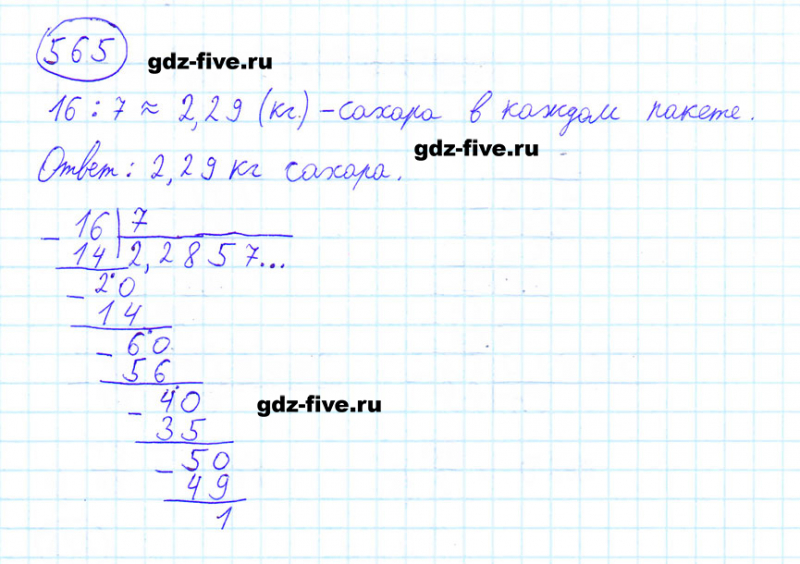 565 gdz-five.ru
16 : 7 ≈ 2,29 (кг) – сахара в каждом пакете.
gdz-five.ru
Ответ: 2,29 кг сахара.
– 16 | 7
14 | 2,2857...
– 20
14
– 60
56
– 40 gdz-five.ru
35
– 50
49
1